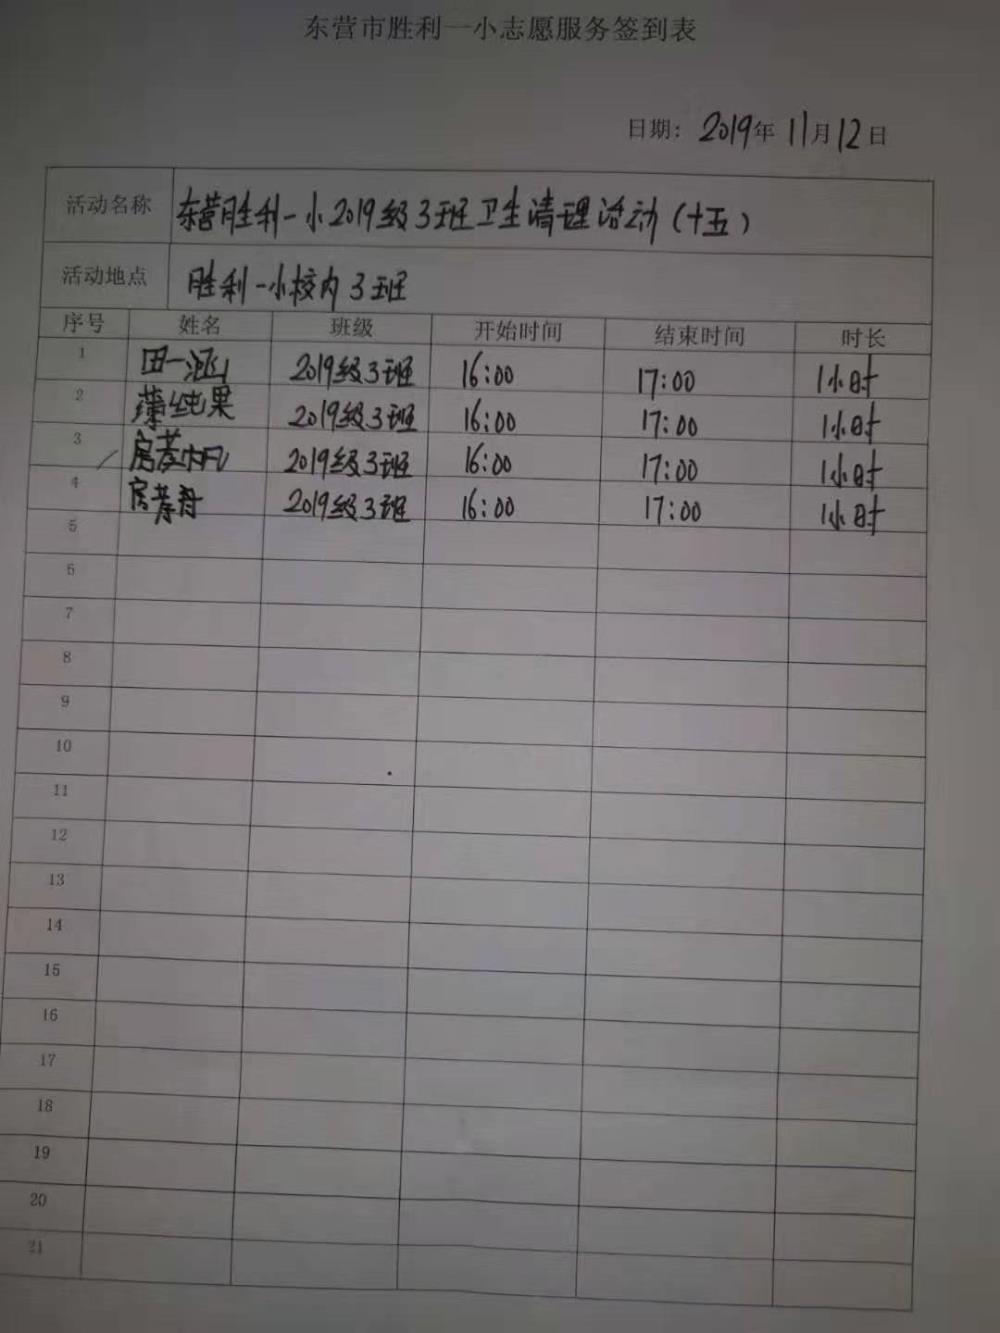 东营市胜利一小志愿服务签到表
日期: 2019年 11月12日
活动名称 东营胜利一小2019级3班卫生清理活动(十五)
活动地点 胜利一小校内3班
序号 姓名 班级 开始时间 结束时间 时长
1 田一涵 2019级3班 16:00 17:00 1小时
2 纯果 2019级3班 16:00 17:00 1小时
3 房 2019级3班 16:00 17:00 1小时
4 房 2019级3班 16:00 17:00 1小时
5
6
7
8
9
10
11
12
13
14
15
16
17
18
19
20
21